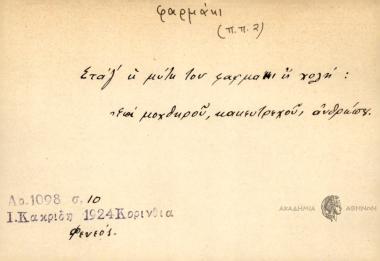 φαρμάκι
(π.π. 2)
Στάζ' ἡ μύτη του φαρμάκι ἢ χολή :
ἐπὶ μοχθηροῦ, κακεντρεχοῦς ἀνθρώπου.
Αρ. 1098 σ. 10
Ι. Κακριδῆ 1924 Κορινθία
Φενεός.
ΑΚΑΔΗΜΙΑ ΑΘΗΝΩΝ